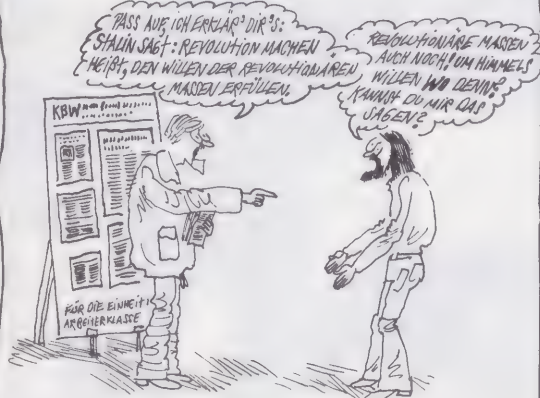 PASS AUF, ICH ERKLÄR' DIR'S:
STALIN SAGT: REVOLUTION MACHEN
HEIßT, DEN WILLEN DER REVOLUTIONÄREN
MASSEN ERFÜLLEN.
REVOLUTIONÄRE MASSEN?
AUCH NOCH! UM HIMMELS
WILLEN WO DENN?
KANNST DU MIR DAS
SAGEN?
KBW
FÜR DIE EINHEIT
ARBEITERKLASSE